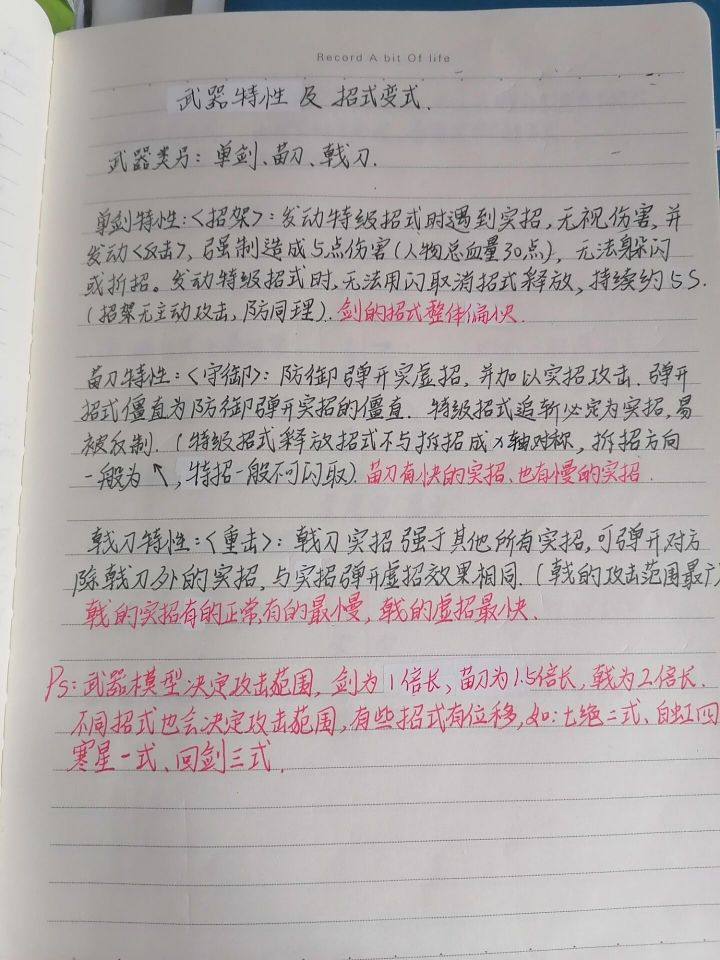 Record A bit Of life
武器特性及招式变式.
武器类另：单剑、苗刀、戟刀.
单剑特性：<招架>：发动特级招式时遇到实招，无视伤害，并
发动<反击>，强制造成5点伤害(人物总血量30点)，无法躲闪
或折招。发动特级招式时，无法用闪取消招式释放，持续约5S.
(招架无主动攻击，防同理). 剑的招式整体偏快.
苗刀特性：<守御>：防御弹开实虚招，并加以实招攻击. 弹开
招式僵直为防御弹开实招的僵直. 特级招式追斩必定为实招，易
被反制. (特级招式释放招式不与拆招成x轴对称，拆招方向
一般为↖，特招一般不可闪取). 苗刀有快的实招、也有慢的实招.
戟刀特性：<重击>：戟刀实招强于其他所有实招，可弹开对方
除戟刀外的实招，与实招弹开虚招效果相同. (戟的攻击范围最广)
戟的实招有的正常，有的最慢，戟的虚招最快.
Ps：武器模型决定攻击范围，剑为1倍长，苗刀为1.5倍长，戟为2倍长.
不同招式也会决定攻击范围，有些招式有位移，如：七绝二式、白虹四
寒星一式、回剑三式.